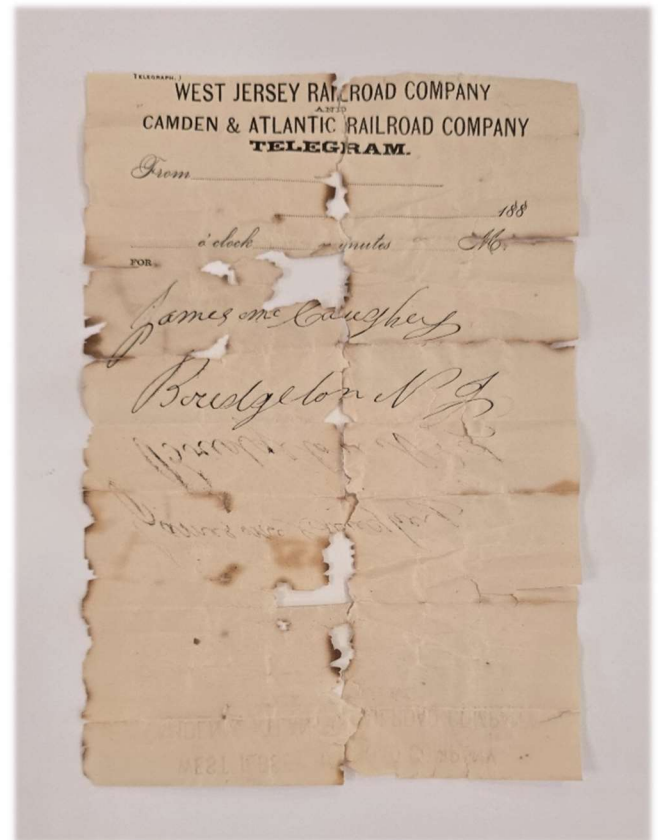 TELEGRAPH.)
WEST JERSEY RAILROAD COMPANY
AND
CAMDEN & ATLANTIC RAILROAD COMPANY
TELEGRAM.
From
188
o'clock minutes M.
FOR
James mc Caughey
Bridgeton N J